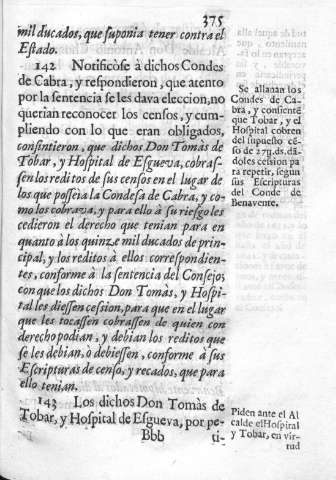 375
mil ducados, que suponia tener contra el
Estado.
142 Notificòse à dichos Condes
de Cabra, y respondieron, que atento
por la sentencia se les dava eleccion, no
querian reconocer los censos, y cum-
pliendo con lo que eran obligados,
consintieron, que dichos Don Tomàs de
Tobar, y Hospital de Esgueva, cobras-
sen los reditos de sus censos en el lugar de
los que posseìa la Condesa de Cabra, y co-
mo los cobrava, y para ello à su riesgo les
cedieron el derecho que tenian para en
quanto à los quinze mil ducados de prin-
cipal, y los reditos à ellos correspondien-
tes, conforme à la sentencia del Consejo,
con que los dichos Don Tomàs, y Hospi-
tal les diessen cession, para que en el lugar
que les tocassen cobrassen de quien con
derecho podian, y debian los reditos que
se les debian, ò debiessen, conforme à sus
Escripturas de censo, y recados, que para
ello tenian.
143 Los dichos Don Tomàs de
Tobar, y Hospital de Esgueva, por pe-
Bbb ti-
Se allanan los
Condes de Ca-
bra, y consiente
que Tobar, y el
Hospital cobren
del supuesto cē-
so de 27U.ds. dā-
doles cession pa
ra repetir, segun
sus Escripturas
del Conde de
Benavente.
Piden ante el Al
calde el Hospital
y Tobar, en vir-
tud